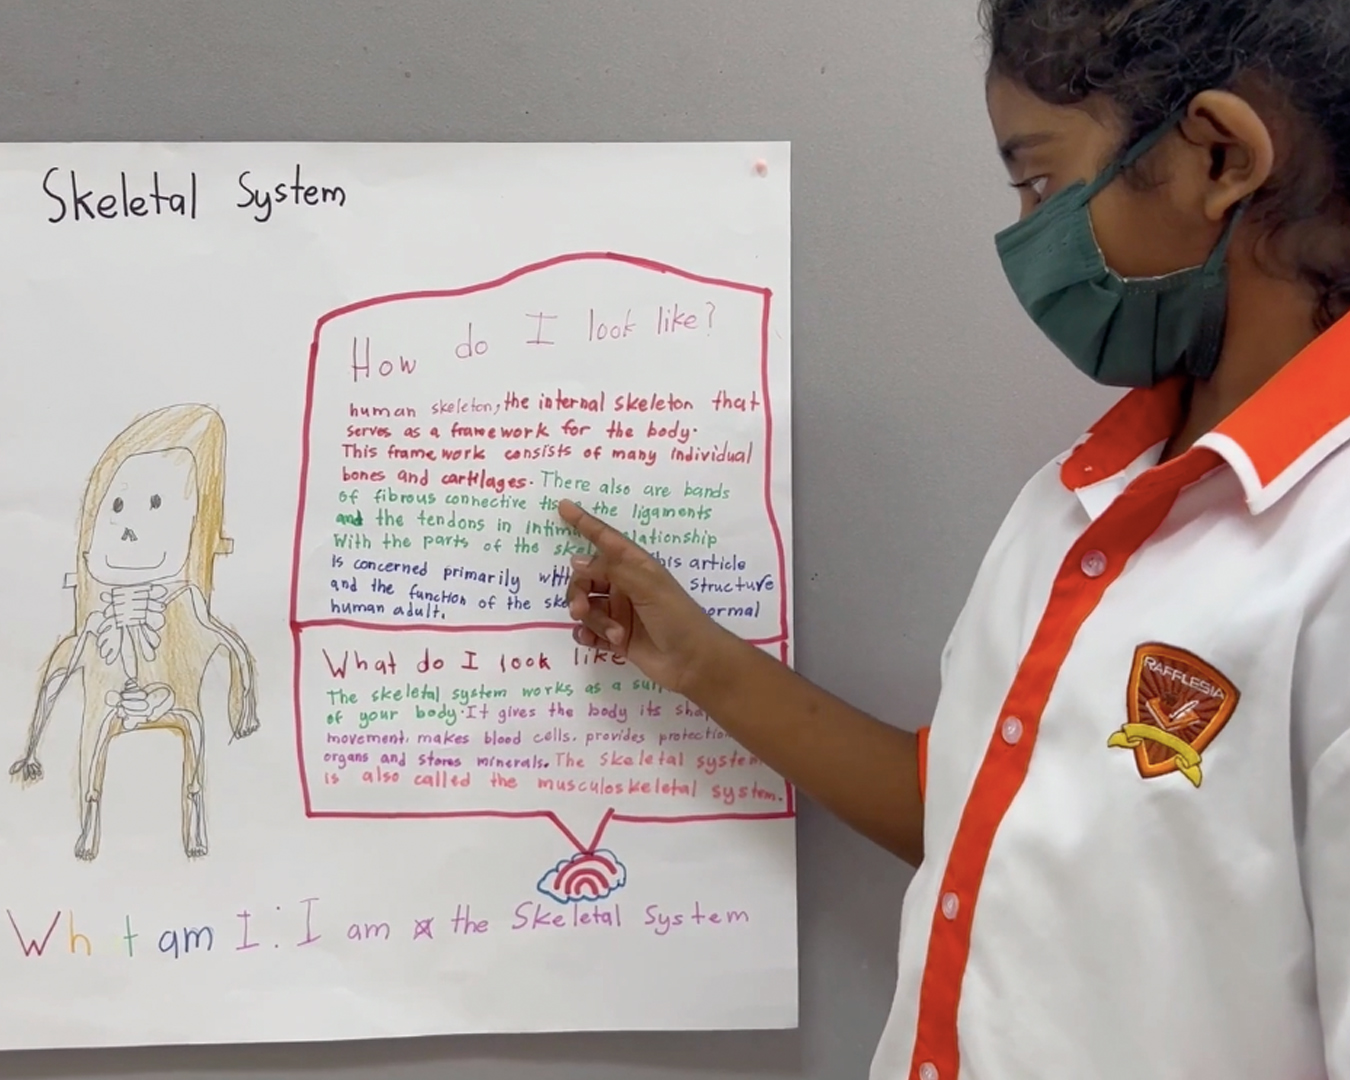 Skeletal System
How do I look like?
human skeleton, the internal skeleton that
serves as a framework for the body.
This frame work consists of many individual
bones and cartilages. There also are bands
of fibrous connective the ligaments
and the tendons in relationship
With the parts of the
is concerned primarily article
and the function of the structure
human adult.
What do I look like
The skeletal system works as a
of your body. It gives the body its
movement, makes blood cells, provides
organs and stores minerals. The skeletal system
is also called the musculoskeletal system.
What am I: I am the Skeletal System
RAFFLESIA